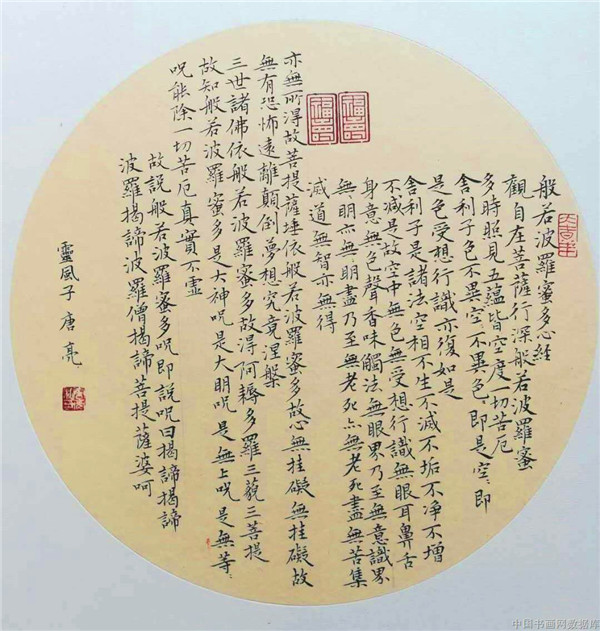 般若波羅蜜多心経
觀自在菩薩行深般若波羅蜜
多時照見五蘊皆空度一切苦厄
舍利子色不異空〻不異色〻即是空〻即
是色受想行識亦復如是
舍利子是諸法空相不生不滅不垢不净不增
不減是故空中無色無受想行識無眼耳鼻舌
身意無色聲香味觸法無眼界乃至無意識界
無〻明亦無〻明盡乃至無老死亦無老死盡無苦集
滅道無智亦無得
亦無所得故菩提薩埵依般若波羅蜜多故心無挂礙無挂礙故
無有恐怖遠離顛倒夢想究竟涅槃
三世諸佛依般若波羅蜜多故得阿耨多羅三藐三菩提
故知般若波羅蜜多是大神呪是大明呪是無上呪是無等〻
呪能除一切苦厄真實不虚
故説般若波羅蜜多呪即説呪曰揭諦揭諦
波羅揭諦波羅僧揭諦菩提薩婆呵
靈風子唐亮
中国书画网数据库